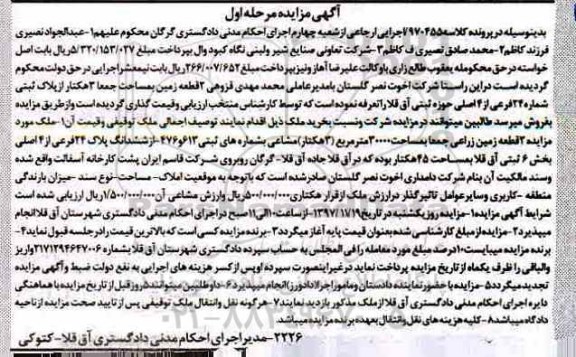 آگهی مزایده مرحله اول
بدینوسیله در پرونده کلاسه ۹۷۰۴۵۵/ اجرایی ارجاعی از شعبه چهارم اجرای احکام مدنی دادگستری گرگان محکوم علیهم ۱-عبدالجواد نصیری
فرزند کاظم ۲-محمد صادق نصیری ف کاظم ۳-شرکت تعاونی صنایع شیر ولبنی نگاه کبود وال بپرداخت مبلغ ۵/۳۲۰/۱۵۳/۰۲۷ ریال بابت اصل
خواسته در حق محکومله یعقوب طالع زاری با وکالت علیرضا آهاز ونیز بپرداخت مبلغ ۲۶۶/۰۰۷/۶۵۲ ریال بابت نیمعشر اجرایی در حق دولت محکوم
گردیده است در این راستا شرکت اخوت نصر گلستان با مدیر عاملی محمد مهدی قزوهی ۲ قطعه زمین بمساحت جمعا ۳ هکتار از پلاک ثبتی
شماره ۲۴ فرعی از ۴ اصلی حوزه ثبتی آق قلا را تعرفه نموده است که توسط کارشناس منتخب ارزیابی وقیمت گذاری گردیده است واز طریق مزایده
بفروش میرسد طالبین میتوانند در مزایده شرکت ونسبت بخرید ملک ذیل اقدام نمایند توصیف اجمالی ملک توقیفی وقیمت آن ۱-ملک مورد
مزایده ۲ قطعه زمین زراعی جمعا بمساحت ۳۰۰۰۰ مترمربع (۳ هکتار) مشاعی بشماره های ثبتی ۶۱۳ و ۴۷۶ -از ششدانگ پلاک ۲۴ فرعی از ۴ اصلی
بخش ۶ ثبتی آق قلا بمساحت ۴۵ هکتار بوده که در آق قلا جاده آق قلا- گرگان روبروی شرکت قاسم ایران پشت کارخانه آسفالت واقع شده
وسند مالکیت آن بنام شرکت دامداری اخوت نصر گلستان صادر شده است که با توجه به موقعیت املاک- مساحت- نوع سند -میزان بارندگی
منطقه -کاربری وسایر عوامل تاثیر گذار در ارزش ملک از قرار هکتاری ۵۰۰/۰۰۰/۰۰۰ ریال وارزش مشاعی آن ۱/۵۰۰/۰۰۰/۰۰۰ ریال ارزیابی شده است
شرایط آگهی مزایده ۱-مزایده روز یکشنبه در تاریخ ۱۳۹۷/۱۱/۱۹ از ساعت ۱۰ الی ۱۱ صبح در اجرای احکام مدنی دادگستری شهرستان آق قلا انجام
میپذیرد ۲-مزایده از مبلغ کارشناسی شده بعنوان قیمت پایه آغاز میگردد ۳-برنده مزایده کسی است که بالاترین قیمت را در جلسه قبول نماید ۴-
برنده مزایده میبایست ۱۰ درصد مبلغ مورد معامله را فی المجلس به حساب سپرده دادگستری شهرستان آق قلا بشماره ۲۱۷۱۲۹۴۶۴۷۰۰۶ واریز
والباقی را ظرف یکماه از تاریخ مزایده پرداخت نماید در غیر اینصورت سپرده او پس از کسر هزینه های اجرایی به نفع دولت ضبط وآگهی مزایده
تجدید میگردد ۵-مزایده با حضور نماینده دادستان ومامور اجرا(دادورز) انجام میپذیرد ۶-داوطلبین میتوانند ۵ روز قبل از تاریخ مزایده با هماهنگی
دایره اجرای احکام مدنی دادگستری آق قلا از ملک مذکور بازدید نمایند ۷-هرگونه نقل وانتقال ملک توقیفی پس از تایید صحت مزایده از ناحیه
دادگاه میباشد ۸-کلیه هزینه های نقل وانتقال بعهده برنده مزایده میباشد
۲۲۲۶-مدیر اجرای احکام مدنی دادگستری آق قلا-کتوکی